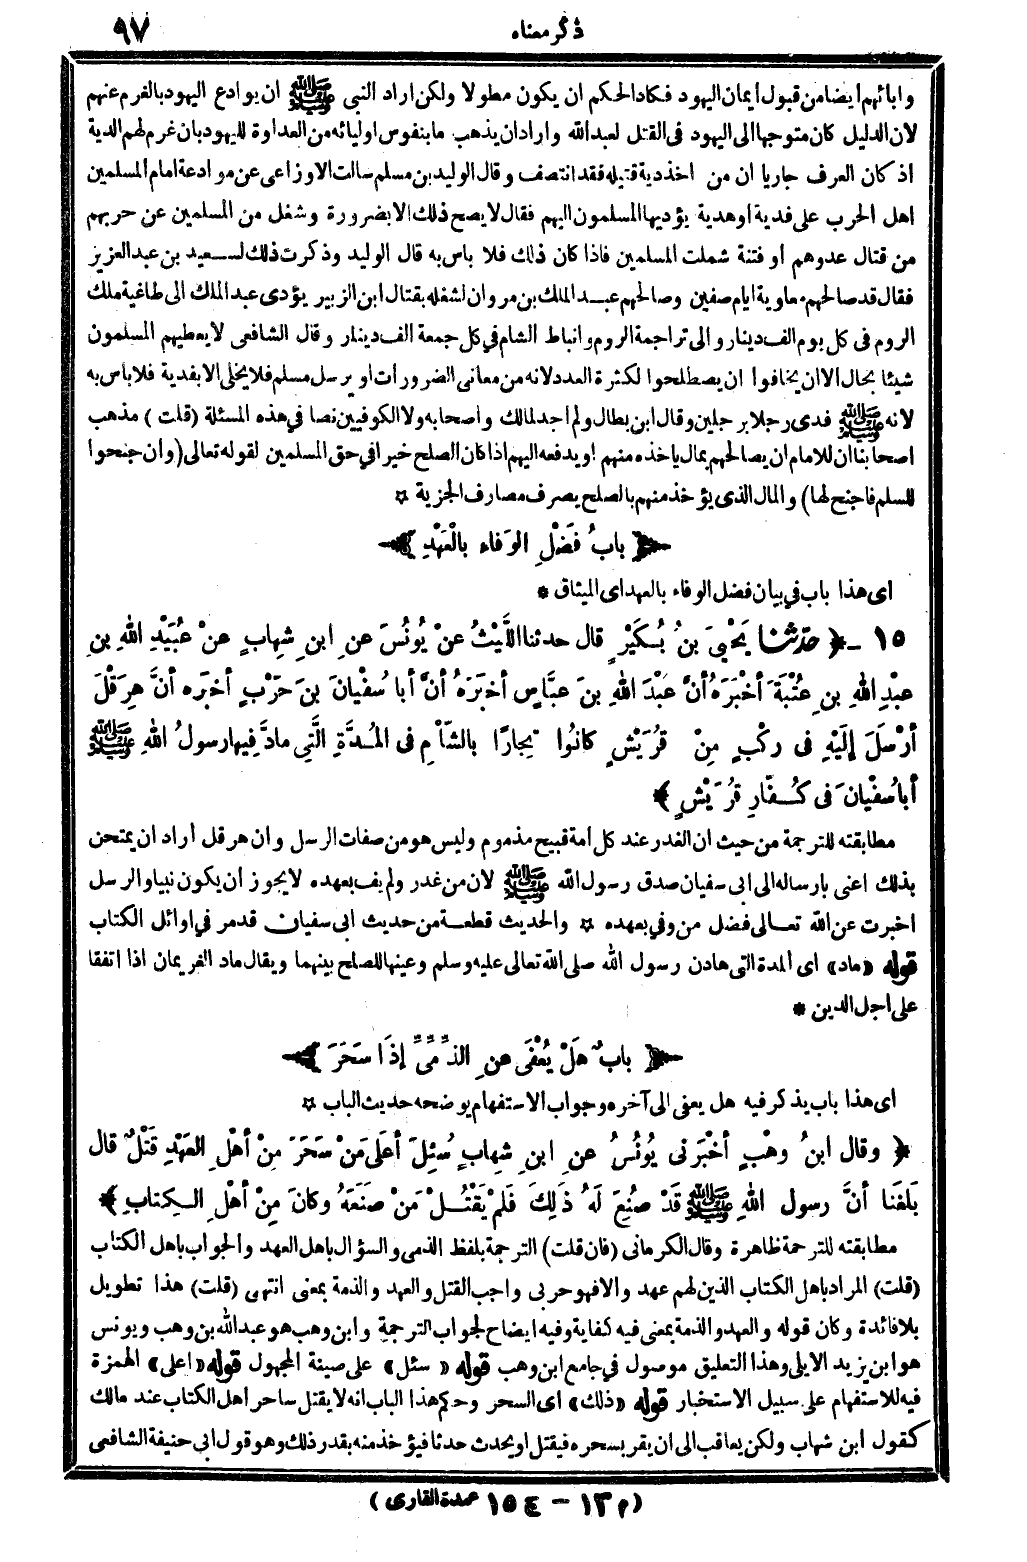 ذكر معناه
٩٧
وابائهم ايضا من قبول أيمان اليهود فكاد الحكم ان يكون مطولا ولكن اراد النبي ﷺ ان يوادع اليهود بالغرم عنهم
لان الدليل كان متوجها الى اليهود فى القتل لعبد الله واراد ان يذهب ما بنفوس اوليائه من العداوة لليهود بان غرم لهم الدية
اذ كان العرف جاريا ان من اخذ دية قتيله فقد انتصف وقال الوليد بن مسلم سالت الاوزاعى عن موادعة امام المسلمين
اهل الحرب على فدية او هدية يؤديها المسلمون اليهم فقال لا يصح ذلك الا بضرورة وشغل من المسلمين عن حربهم
من قتال عدوهم او فتنة شملت المسلمين فاذا كان ذلك فلا باس به قال الوليد وذكرت ذلك لسعيد بن عبد العزيز
فقال قد صالحهم معاوية ايام صفين وصالحهم عبد الملك بن مروان لشغله بقتال ابن الزبير يؤدى عبد الملك الى طاغية ملك
الروم فى كل يوم الف دينار والى تراجمة الروم وانباط الشام في كل جمعة الف دينار وقال الشافعى لا يعطيهم المسلمون
شيئا بحال الا ان يخافوا ان يصطلحوا لكثرة العدد لانه من معانى الضرورات او يرسل مسلم فلا يخلى الا بفدية فلا باس به
لانه ﷺ فدى رجلا برجلين وقال ابن بطال ولم اجد لمالك واصحابه ولا الكوفيين نصا في هذه المسئلة (قلت) مذهب
اصحابنا ان للامام ان يصالحهم بمال ياخذه منهم او يدفعه اليهم اذا كان الصلح خيرا في حق المسلمين لقوله تعالى (وان جنحوا
للسلم فاجنح لها) والمال الذى يؤخذ منهم بالصلح يصرف مصارف الجزية ☆
﴿ بابُ فَضْلِ الوَفاء بالْعَهْدِ ﴾
اى هذا باب في بيان فضل الوفاء بالعهد اى الميثاق *
١٥ - ﴿ حدثنا يَحْيَى بنُ بُكَيْرٍ قال حدثنا اللَّيْثُ عنْ يُونُسَ عنِ ابنِ شِهابٍ عنْ عُبَيْدِ اللهِ بنِ
عبْدِ اللهِ بنِ عُتْبَةَ أخْبَرَهُ أنَّ عَبْدَ اللهِ بنَ عبَّاسٍ أخبَرَهُ أنَّ أبا سُفْيانَ بنَ حَرْبٍ أخبَره أنَّ هِرَقْلَ
أرْسَلَ إلَيْهِ فى ركْبٍ مِنْ قُرَيْشٍ كانُوا تِجارًا بالشَّأْمِ فى المُدَّةِ الَّتِي مادَّ فِيها رسولُ اللهِ ﷺ
أبا سُفْيانَ فى كُفَّارِ قُرَيْشٍ ﴾
مطابقته للترجمة من حيث ان الغدر عند كل أمة قبيح مذموم وليس هو من صفات الرسل وان هرقل أراد ان يمتحن
بذلك اعنى بارساله الى ابى سفيان صدق رسول الله ﷺ لان من غدر ولم يف بعهده لا يجوز أن يكون نبيا والرسل
اخبرت عن الله تعالى فضل من وفي بعهده ☆ والحديث قطعة من حديث ابى سفيان قد مر في اوائل الكتاب
قوله «ماد» اى المدة التى هادن رسول الله صلى الله تعالى عليه وسلم وعينها للصلح بينهما ويقال ماد الغريمان اذا اتفقا
على اجل الدين *
﴿ بابٌ هَلْ يُعْفَى عنِ الذِّمِّيِّ إذَا سَحَرَ ﴾
اى هذا باب يذكر فيه هل يعفى الى آخره وجواب الاستفهام يوضحه حديث الباب ☆
﴿ وقال ابنُ وهْبٍ أخْبَرَنى يُونُسُ عنِ ابنِ شِهابٍ سُئِلَ أعَلَى مَنْ سَحَرَ مِنْ أهْلِ العَهْدِ قَتْلٌ قال
بَلَغَنا أنَّ رسول اللهِ ﷺ قَدْ صُنِعَ لَهُ ذَلِكَ فَلَمْ يَقْتُلْ مَنْ صَنَعَهُ وكانَ مِنْ أهْلِ الكِتابِ ﴾
مطابقته للترجمة ظاهرة وقال الكرمانى (فان قلت) الترجمة بلفظ الذمى والسؤال باهل العهد والجواب باهل الكتاب
(قلت) المراد باهل الكتاب الذين لهم عهد والا فهو حربى واجب القتل والعهد والذمة بمعنى انتهى (قلت) هذا تطويل
بلا فائدة وكان قوله والعهد والذمة بمعنى فيه كفاية وفيه ايضاح لجواب الترجمة وابن وهب هو عبد الله بن وهب ويونس
هو ابن يزيد الايلى وهذا التعليق موصول في جامع ابن وهب قوله «سئل» على صيغة المجهول قوله «اعلى» الهمزة
فيه للاستفهام على سبيل الاستخبار قوله «ذلك» اى السحر وحكم هذا الباب انه لا يقتل ساحر اهل الكتاب عند مالك
كقول ابن شهاب ولكن يعاقب الى ان يقر بسحره فيقتل او يحدث حدثا فيؤخذ منه بقدر ذلك وهو قول ابى حنيفة الشافعى
(م ١٣ - ١٥٤ عمدة القارى)